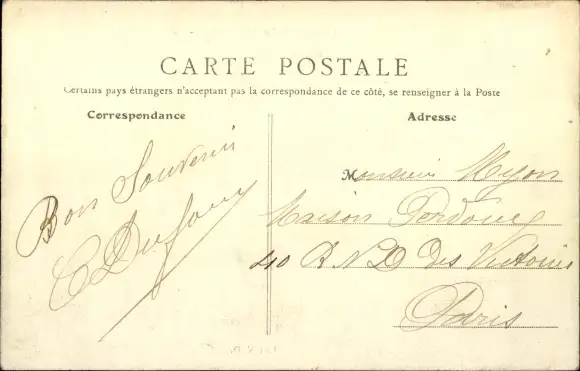 CARTE POSTALE
Certains pays étrangers n'acceptant pas la correspondance de ce côté, se renseigner à la Poste
Correspondance
Bon Souvenir
C Dufour
Adresse
Monsieur Myon
Maison
40 R N D des Victoires
Paris